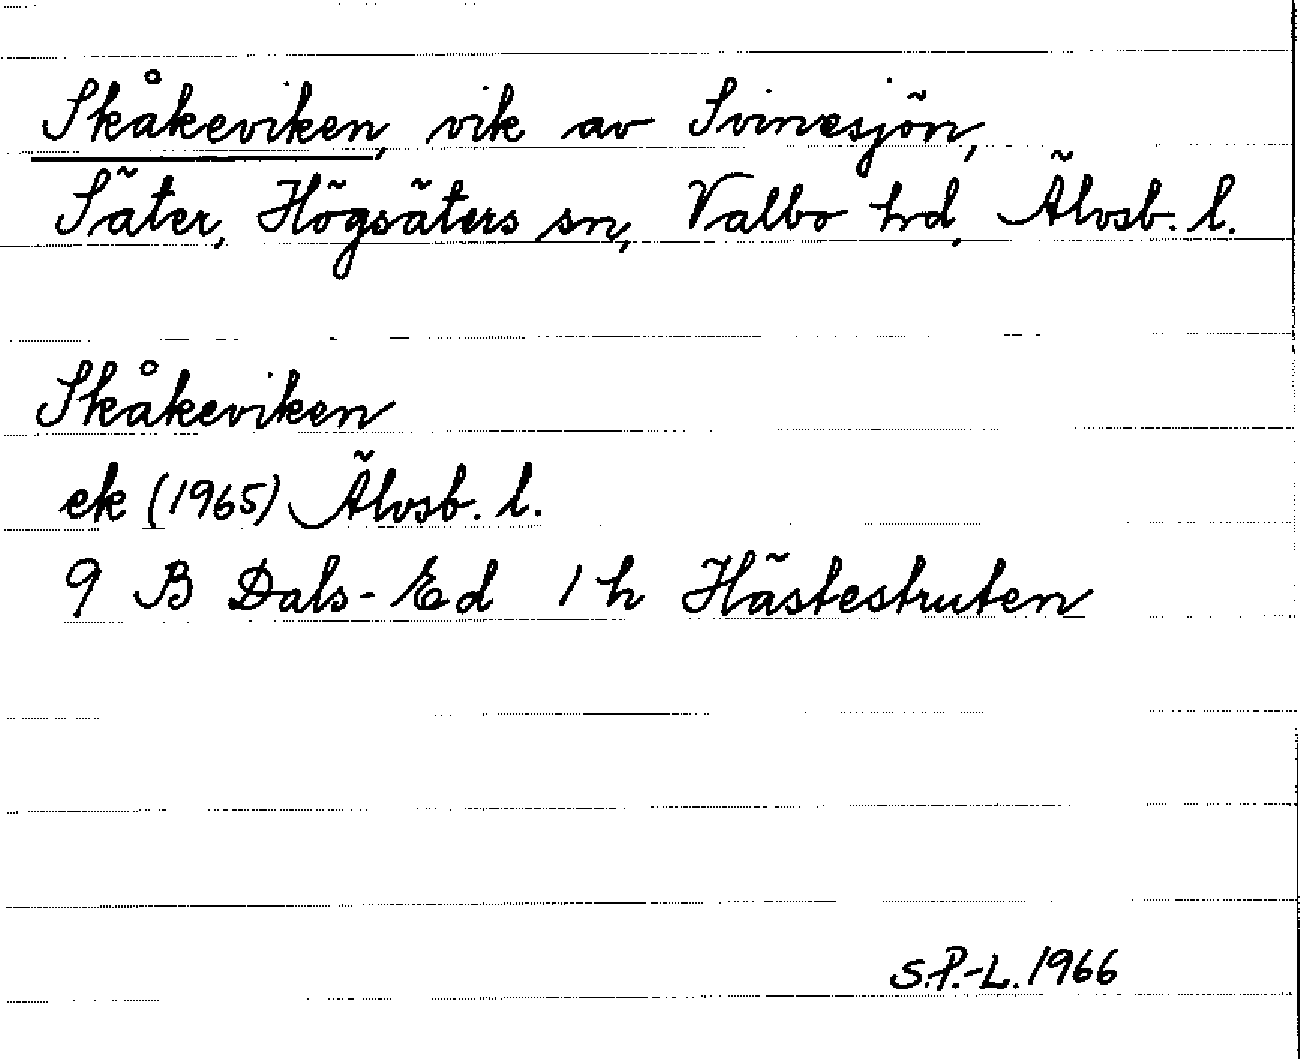 Skåkeviken, vik av Svinesjön,
Säter, Högsäters sn, Valbo hd, Älvsb. l.
Skåkeviken
ek (1965) Älvsb. l.
9 B Dals-Ed 1 h Hästestruten
S.P.-L. 1966